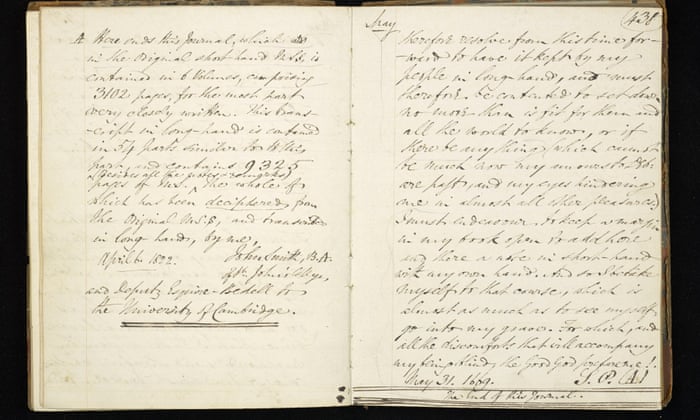 A Here ends this Journal, which
in the Original short hand M.S.S. is
contained in 6 Volumes, comprising
3102 pages, for the most part
very closely written. This trans-
cript in long-hand is contained
in 54 parts similar to this
part, and contains 9325
(besides all the notes & remarks)
pages of M.S. the whole of
which has been deciphered from
the Original M.S.S., and transcribed
in long hand, by me,
April 6. 1822. John Smith, B.A.
of St. John's College,
and Deputy Esquire-Bedell to
the University of Cambridge.
May
therefore resolve from this time for-
ward to have it kept by my
people in long-hand, and must
therefore be contented to set down
no more than is fit for them and
all the world to know, or if
there be any thing (which cannot
be much now my amours to Deb:
are past, and my eyes hindering
me in almost all other pleasures)
I must endeavour to keep a margin
in my book open to add here
and there a note in short-hand
with my own hand. And so I betake
myself to that course, which is
almost as much as to see myself
go into my grave. For which, and
all the discomforts that will accompany
my being blind, the Good God prepare me!
May 31. 1669. S. P. (A)
The End of this Journal.